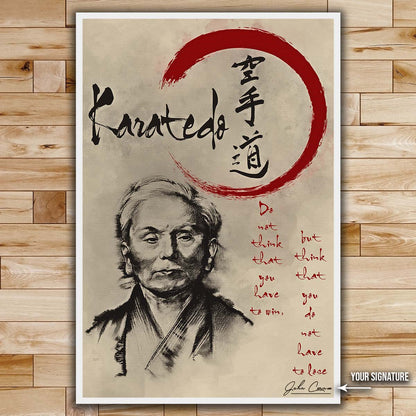 Karatedo
空
手
道
Do
not
think
that
you
have
to win,
but
think
that
you
do
not
have
to lose
YOUR SIGNATURE